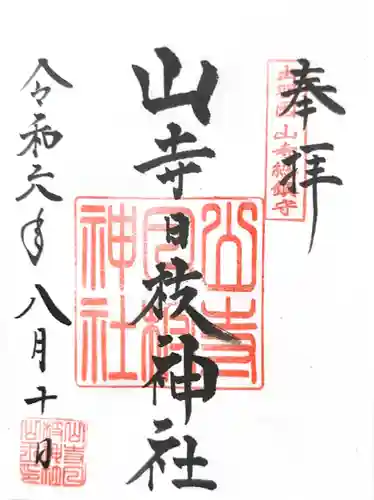 奉拝
山寺日枝神社
令和六年八月十日
山寺日枝神社